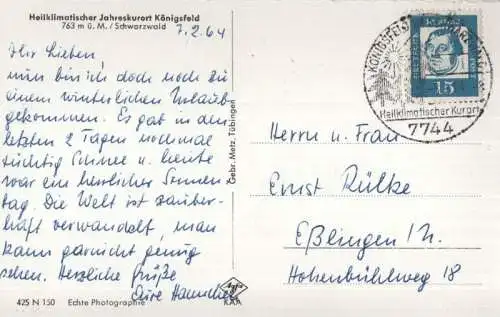 Heilklimatischer Jahreskurort Königsfeld
763 m ü. M. / Schwarzwald
7.2.64
Ihr Lieben,
nun bin ich doch noch zu
einem winterlichen Urlaub
gekommen. Es gab in den
letzten 2 Tagen nochmal
tüchtig Schnee u. heute
war ein herrlicher Sonnen-
tag. Die Welt ist zauber-
haft verwandelt, man
kann garnicht genug
sehen. Herzliche Grüße
Eure
425 N 150 Echte Photographie
Gebr. Metz, Tübingen
KÖNIGSFELD
15
Heilklimatischer Kurort
7744
Herrn u. Frau
Ernst Rülke
Eßlingen / N.
Hohenbühlweg 18
Agfa